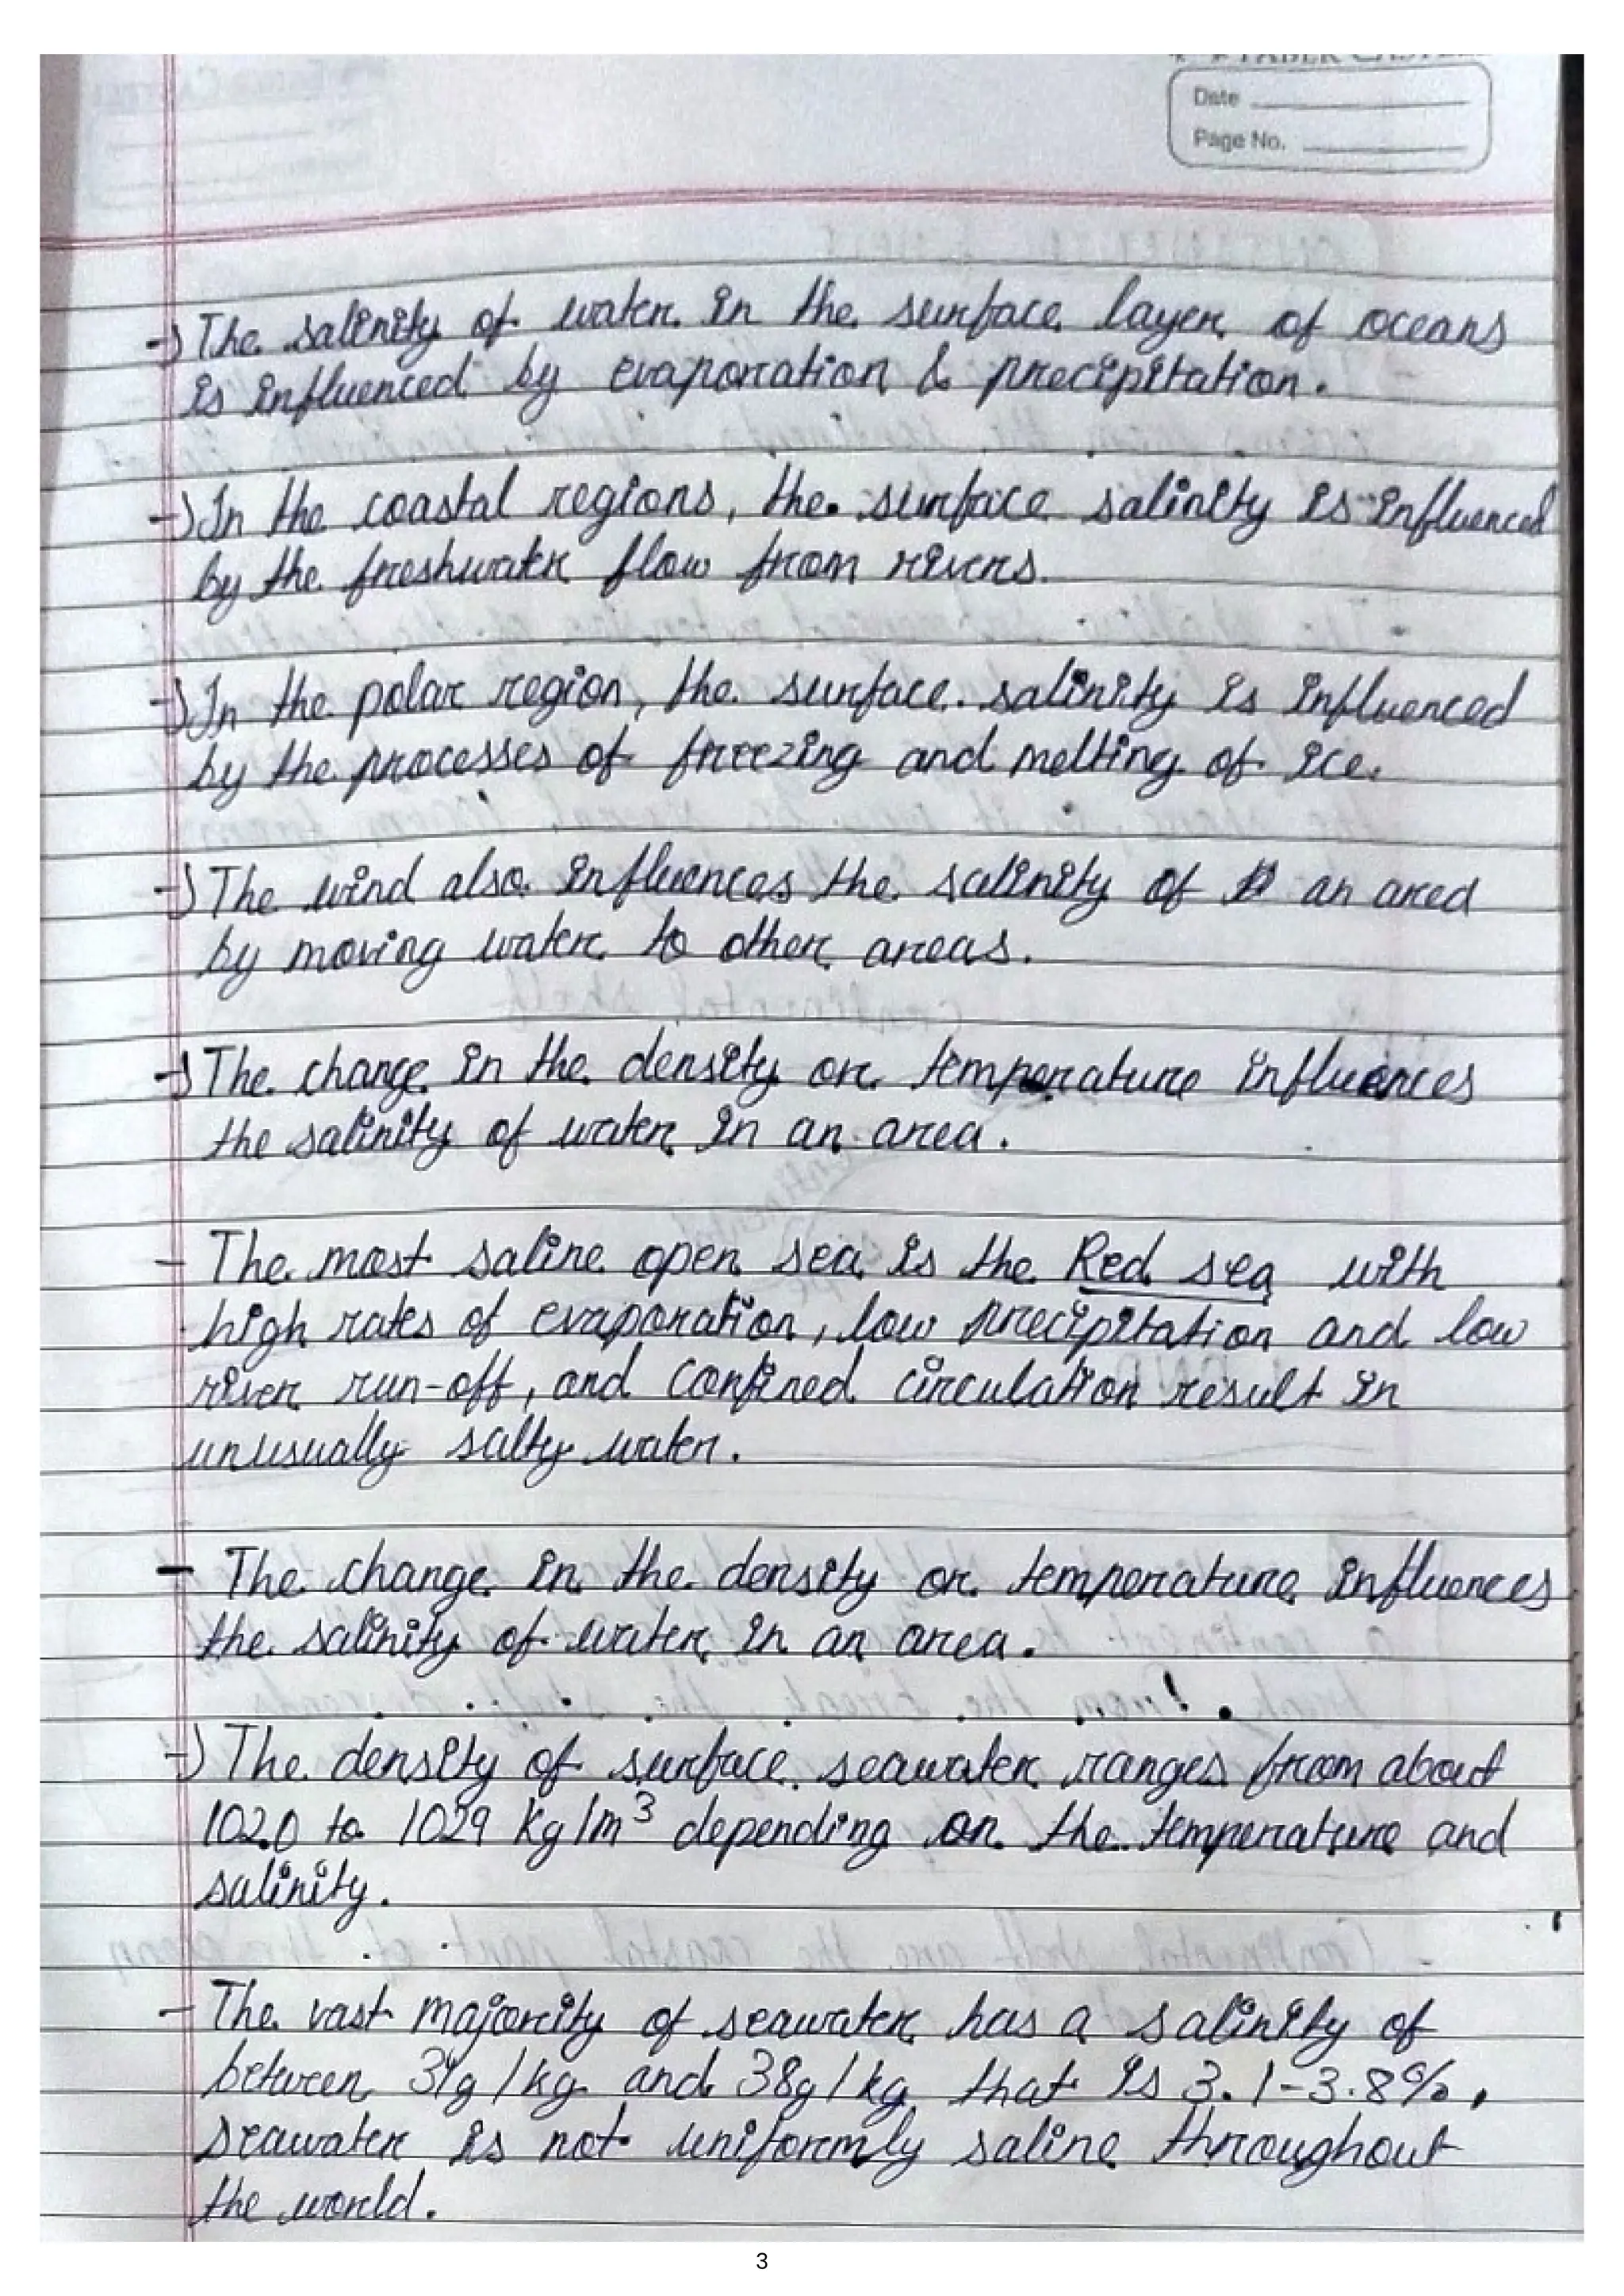 FABER CASTELL
Date
Page No.
→ The salinity of water in the surface layer of oceans
is influenced by evaporation & precipitation.
→ In the coastal regions, the surface salinity is influenced
by the freshwater flow from rivers.
→ In the polar region, the surface salinity is influenced
by the processes of freezing and melting of ice.
→ The wind also influences the salinity of an area
by moving water to other areas.
→ The change in the density or temperature influences
the salinity of water in an area.
- The most saline open sea is the Red sea with
high rates of evaporation, low precipitation and low
river run-off, and confined circulation result in
unusually salty water.
- The change in the density or temperature influences
the salinity of water in an area.
→ The density of surface seawater ranges from about
1020 to 1029 kg/m³ depending on the temperature and
salinity.
- The vast majority of seawater has a salinity of
between 31g/kg and 38g/kg that is 3.1-3.8%.
seawater is not uniformly saline throughout
the world.
3